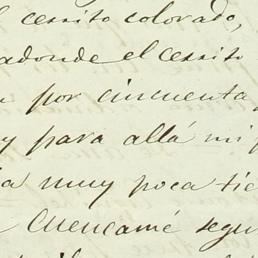 l cerrito colorado,
adonde el cerrito
por cincuenta
y para allá mi
a muy poca tie
Cuencamé segu